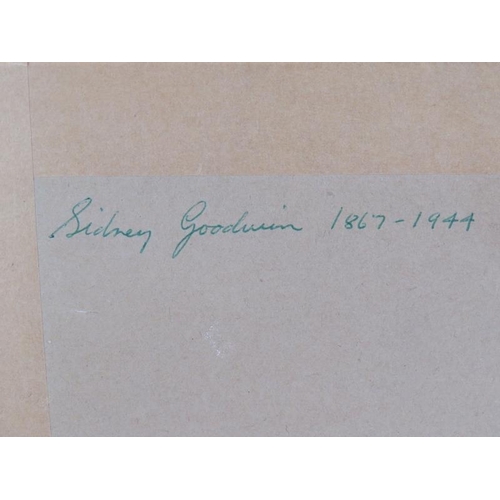 Sidney Goodwin 1867-1944